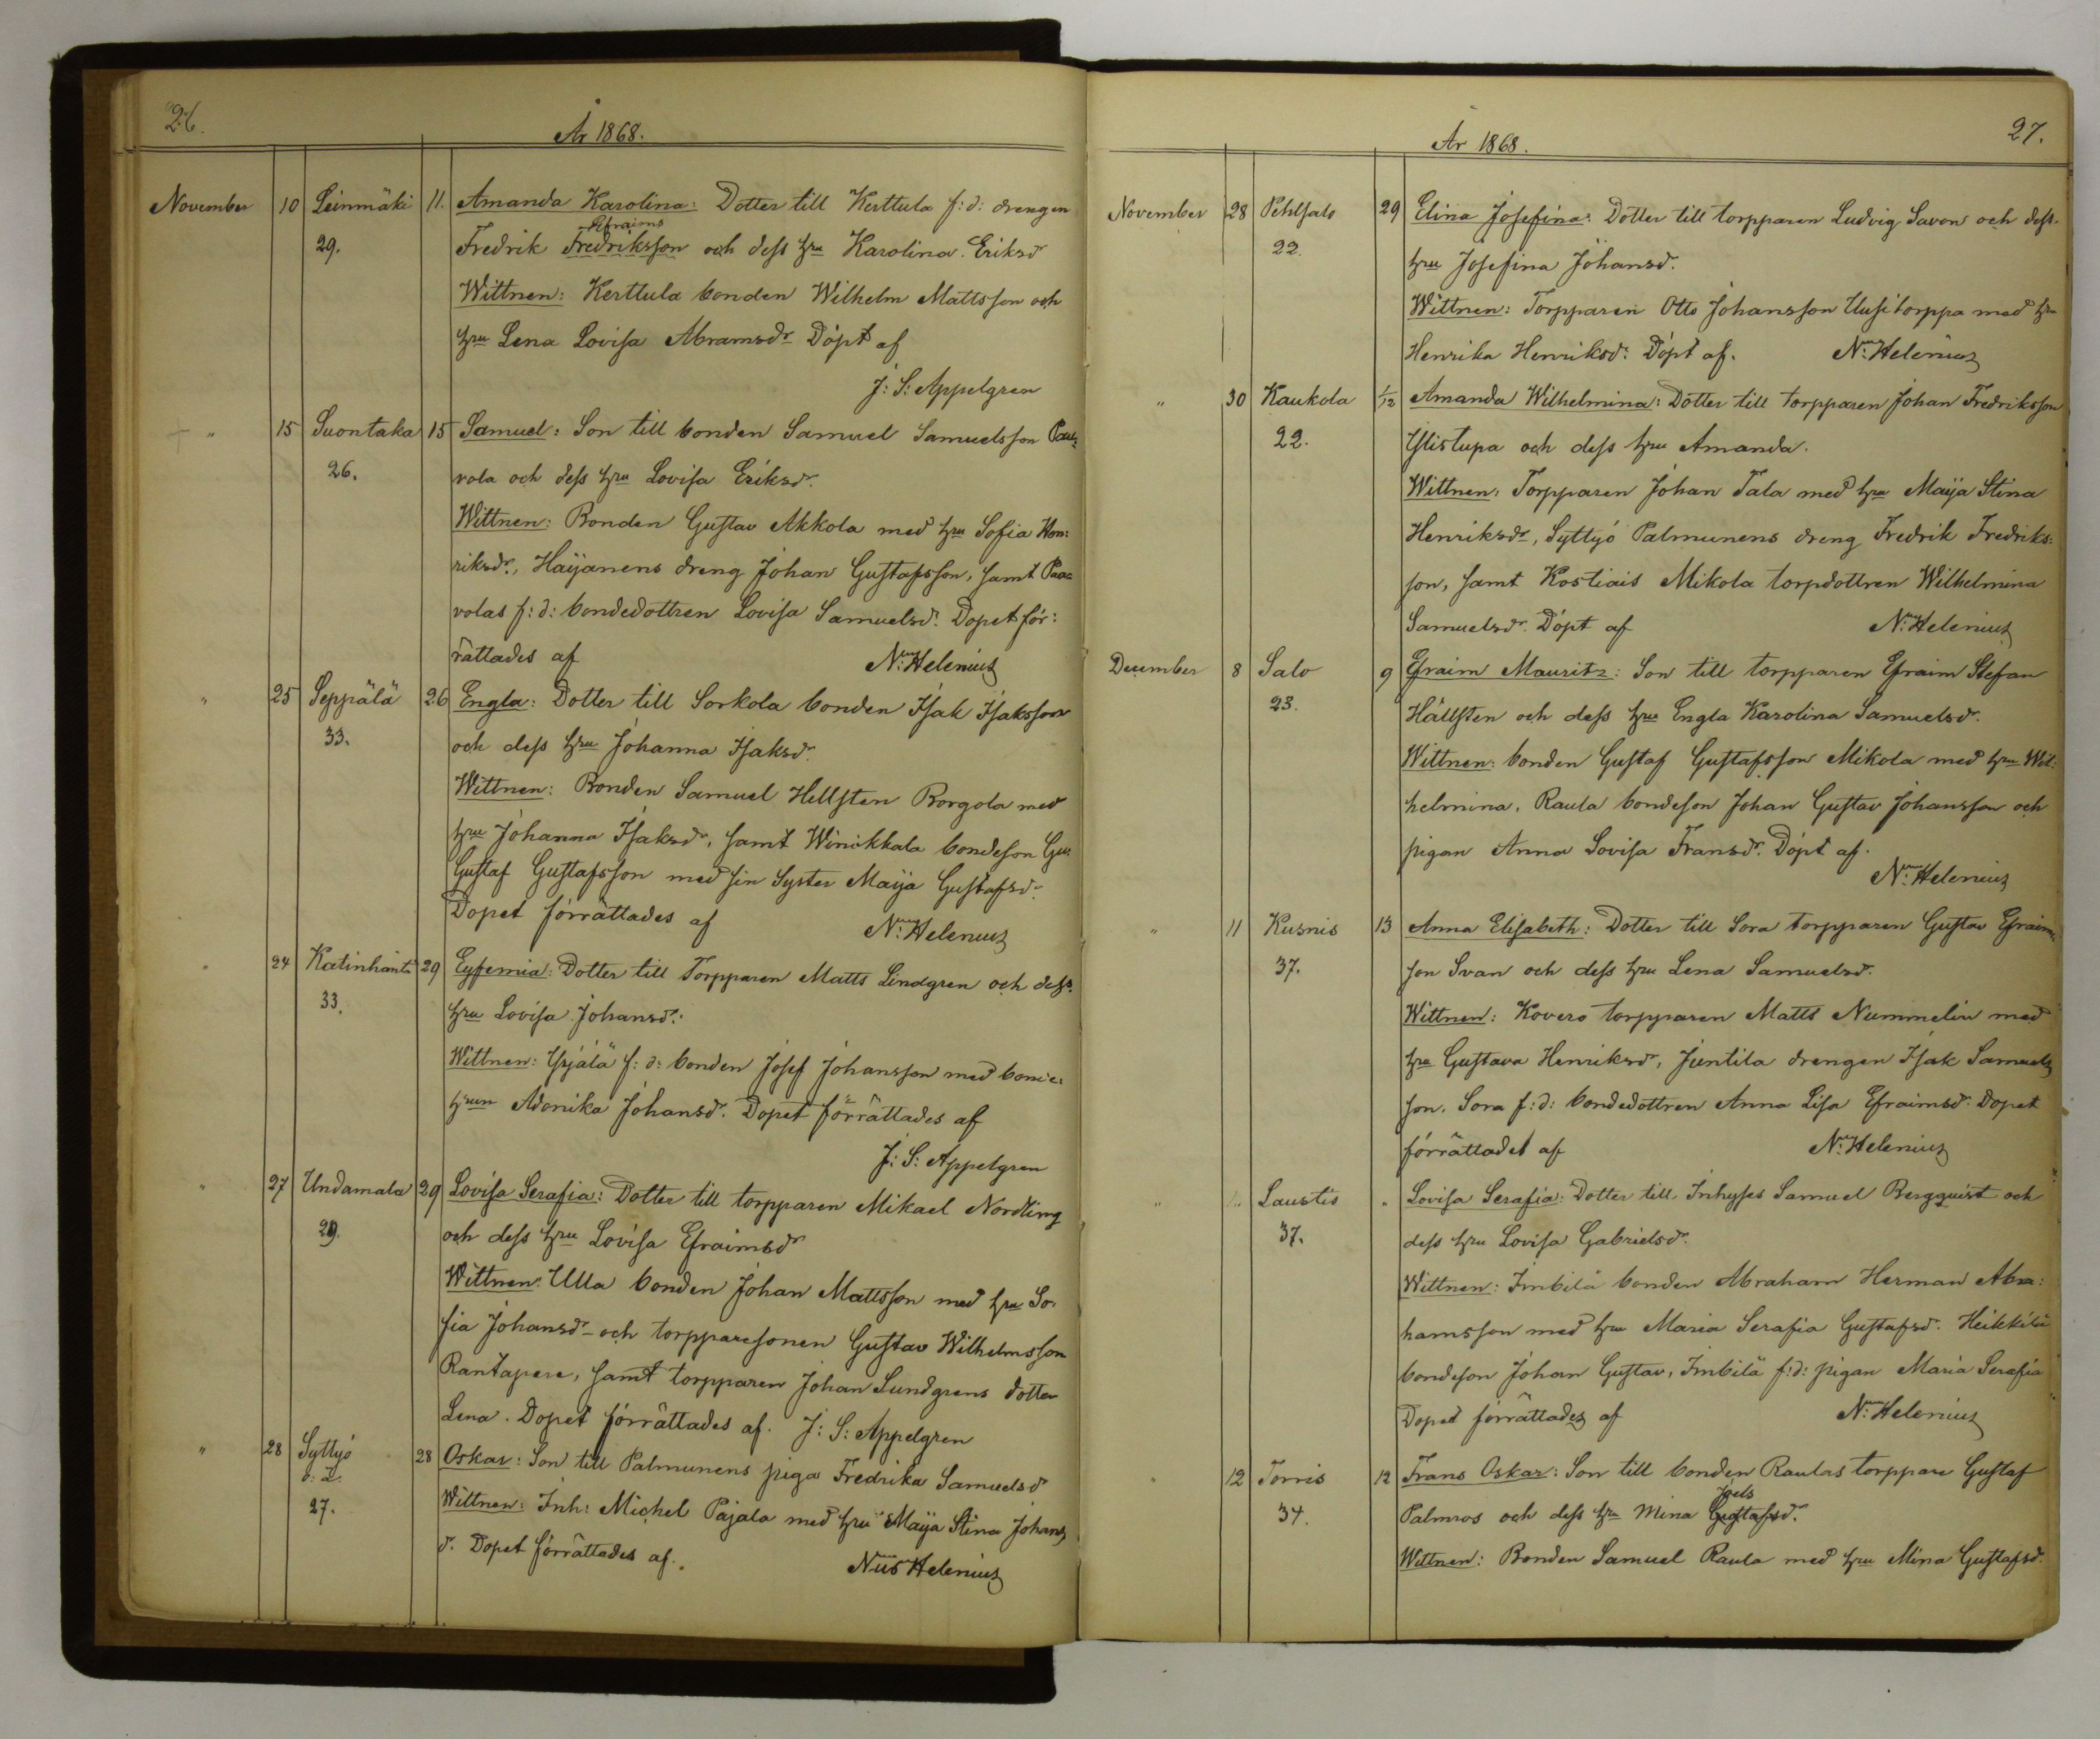 26.
År 1868.
November 10 Leinmäki 11. Amanda Karolina: Dotter till Kerttula f:d: drengen
Efraims
29. Fredrik Fredriksson och dess hru Karolina Eriksdr
Wittnen: Kerttula bonden Wilhelm Mattsson och
hru Lena Lovisa Abramsdr Döpt af
J: S: Appelgren
" 15 Suontaka 15 Samuel: Son till bonden Samuel Samuelsson Paa-
26. vola och dess hru Lovisa Eriksdr.
Wittnen: Bonden Gustav Akkola med hru Sofia Hen:
riksdr., Haijanens dreng Johan Gustafsson, samt Paa-
volas f:d: bondedottren Lovisa Samuelsdr. Dopet för:
rättades af Ns: Helenius
" 25 Seppälä 26 Engla: Dotter till Sorkola bonden Isak Isaksson
33. och dess hru Johanna Isaksdr.
Wittnen: Bonden Samuel Hellsten Borgola med
hru Johanna Isaksdr, samt Winikkala bondeson Gu:
Gustaf Gustafsson med sin Syster Maija Gustafsdr.
Dopet förrättades af Ns: Helenius
" 24 Katinhänta 29 Eyfemia: Dotter till Torpparen Matts Lindgren och dess
33. hru Lovisa Johansdr.
Wittnen: Yrjälä f:d: bonden Josef Johansson med bonde:
hrun Adonika Johansdr. Dopet förrättades af
J: S: Appelgren
" 27 Undamala 29 Lovisa Serafia: Dotter till torpparen Mikael Nordling
29. och dess hru Lovisa Efraimsdr
Wittnen: Ulla bonden Johan Mattsson med hru So-
fia Johansdr och torpparesonen Gustav Wilhelmsson
Rantapere, samt torpparen Johan Lundgrens dotter
Lena. Dopet förrättades af. J: S: Appelgren
" 28 Syttyö 28 Oskar: Son till Palmunens piga Fredrika Samuelsdr
o: ä.
27. Wittnen: Inh: Michel Pajala med hru Maija Stina Johans
d. Dopet förrättades af. Nils Helenius
27.
År 1868.
November 28 Pehlsalo 29 Elina Josefina: Dotter till torpparen Ludvig Savon och dess
22. hru Josefina Johansdr.
Wittnen: Torpparen Otto Johansson Uusitorppa med hru
Henrika Henriksdr. Döpt af. Ns: Helenius
" 30 Kaukola 1/12 Amanda Wilhelmina: Dotter till torpparen Johan Fredriksson
22. Ylistupa och dess hru Amanda.
Wittnen: Torpparen Johan Tala med hru Maija Stina
Henriksdr, Syttyö Palmunens dreng Fredrik Fredriks:
son, samt Kostiais Mikola torpdottren Wilhelmina
Samuelsdr. Döpt af Ns: Helenius
December 8 Salo 9 Efraim Mauritz: Son till torpparen Efraim Stefan
23. Hällsten och dess hru Engla Karolina Samuelsdr.
Wittnen: bonden Gustaf Gustafsson Mikola med hru Wil:
helmina, Raula bondeson Johan Gustav Johansson och
pigan Anna Lovisa Fransdr. Döpt af.
Ns: Helenius
" 11 Kusnis 13 Anna Elisabeth: Dotter till Sora torpparen Gustav Efraims
37. son Svan och dess hru Lena Samuelsdr.
Wittnen: Kovero torpparen Matts Nummelin med
hru Gustava Henriksdr, Juntila drengen Isak Samuels
son, Sora f:d: bondedottren Anna Lisa Efraimsdr. Dopet
förrättadet af Ns: Helenius
" " Laustis " Lovisa Serafia: Dotter till Inhyses Samuel Bergquist och
37. dess hru Lovisa Gabrielsdr.
Wittnen: Imbilä bonden Abraham Herman Abra:
hamsson med hru Maria Serafia Gustafsdr. Heikkilä
bondeson Johan Gustav, Imbilä f:d: pigan Maria Serafia
Dopet förrättades af Ns: Helenius
" 12 Torris 12 Frans Oskar: Son till bonden Raulas torppare Gustaf
Joels
34. Palmros och dess hru Mina Gustafsdr.
Wittnen: Bonden Samuel Raula med hru Mina Gustafsd.